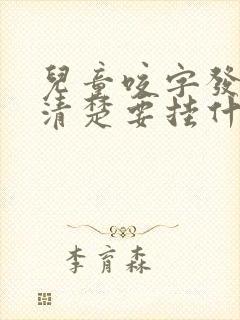 兒童咬字發
清楚要挂什
李育森